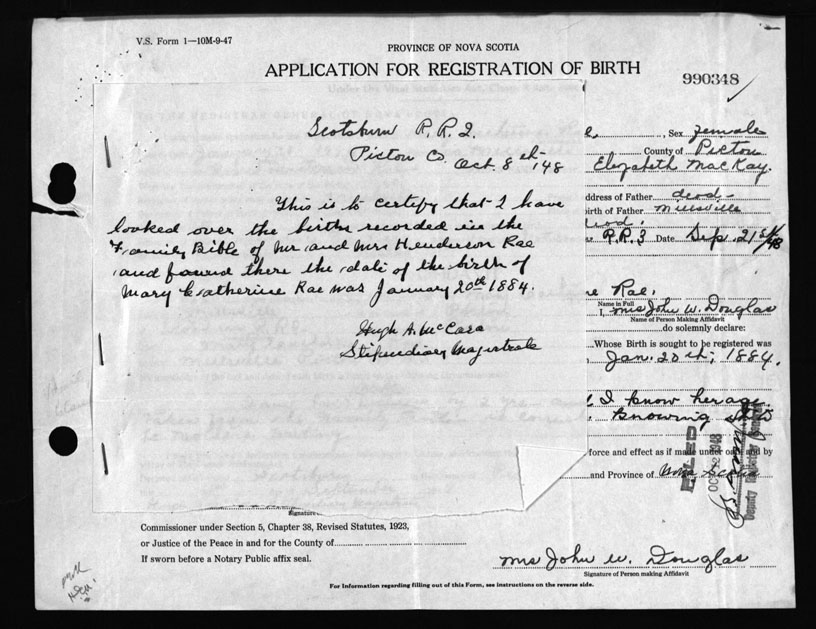 V.S. Form 1—10M-9-47
PROVINCE OF NOVA SCOTIA
APPLICATION FOR REGISTRATION OF BIRTH
990348
Scotsburn R.R.2.
Pictou Co. Oct. 8th '48
This is to certify that I have
looked over the births recorded in the
Family Bible of Mr. and Mrs Henderson Rae
and found there the date of the birth of
Mary Catherine Rae was January 20th 1884.
Hugh A. McCara
Stipendiary Magistrate
, Sex female
County of Pictou
Elizabeth MacKay.
ddress of Father dead
irth of Father Millsville
R.R.3 Date Sep. 21st/48
e Rae.
Name in Full
I, Mrs John W. Douglas
Name of Person Making Affidavit
do solemnly declare:
Whose Birth is sought to be registered was
Jan. 20th, 1884.
I know her age.
knowing
force and effect as if made under oath and by
and Province of Nova Scotia
FILED
OCT 2 1948
Signature
Commissioner under Section 5, Chapter 38, Revised Statutes, 1923,
or Justice of the Peace in and for the County of
If sworn before a Notary Public affix seal.
Mrs John W. Douglas
Signature of Person making Affidavit
For Information regarding filling out of this Form, see instructions on the reverse side.